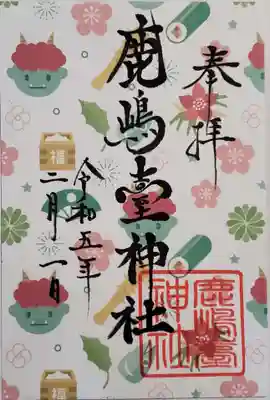 奉拝
鹿嶋臺神社
令和五年
二月一日
鹿嶋臺
神社
福
福
福